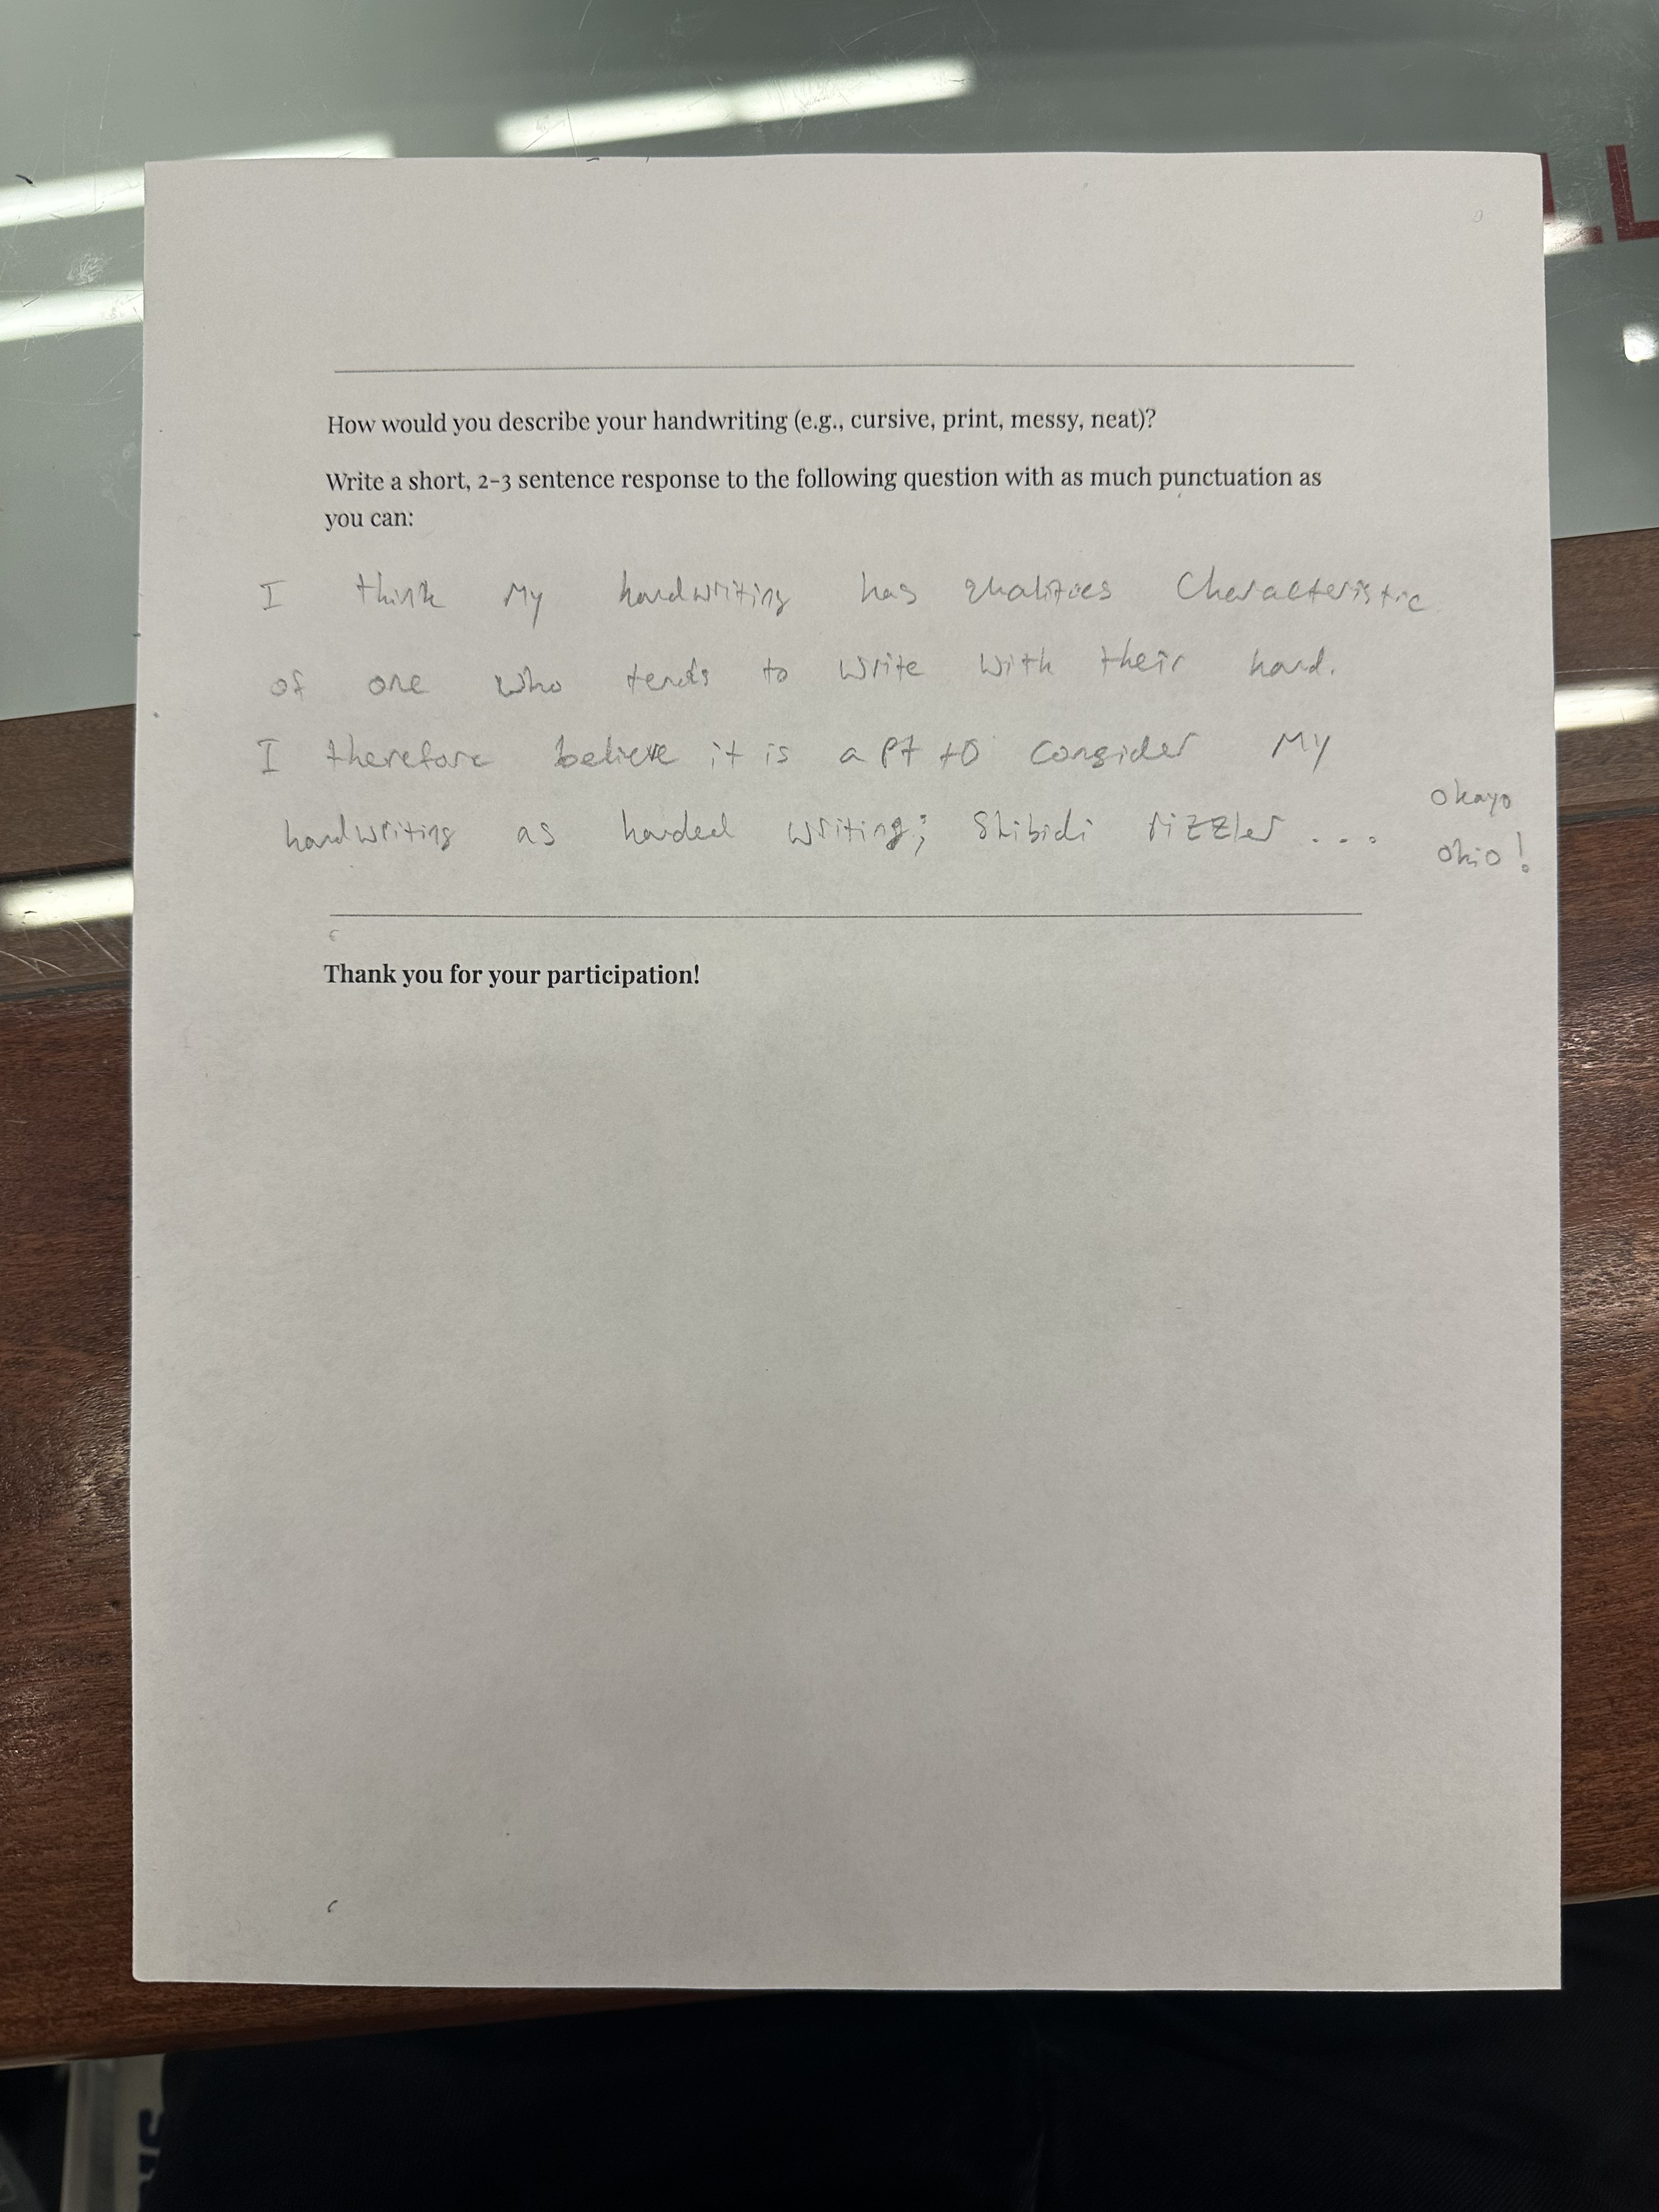 LL
How would you describe your handwriting (e.g., cursive, print, messy, neat)?
Write a short, 2-3 sentence response to the following question with as much punctuation as
you can:
I think My handwriting has qualities Characteristic
of one who tends to write with their hand.
I therefore believe it is apt to consider My
handwriting as handed writing; Skibidi rizzler ... okayo
ohio!
Thank you for your participation!